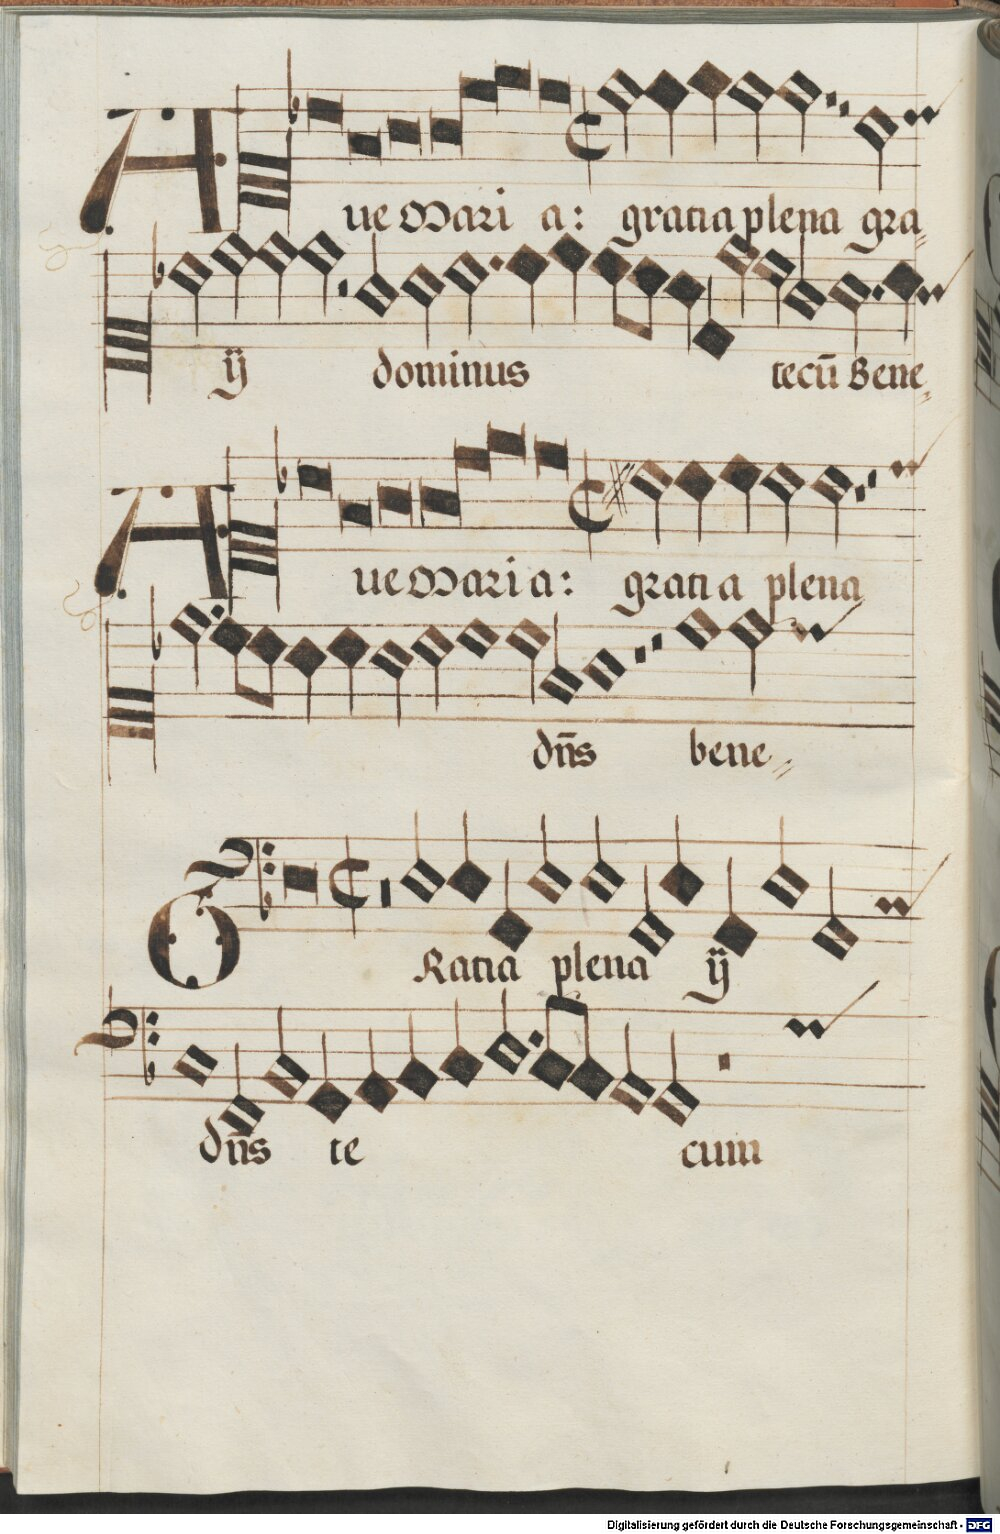 Aue Mari a: gratia plena gra
ij dominus tecū Bene
Aue Mari a: grati a plena
dn̄s bene
GRatia plena ij
dn̄s te cum
Digitalisierung gefördert durch die Deutsche Forschungsgemeinschaft - DFG